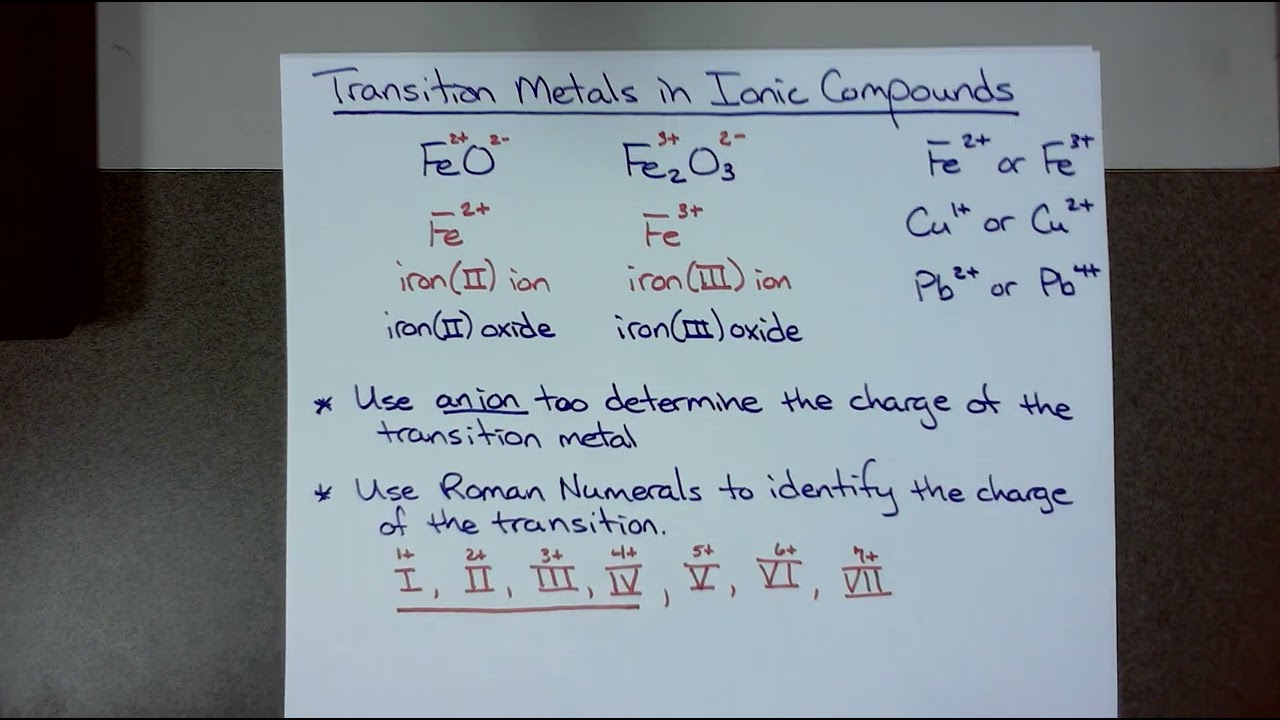 Transition Metals in Ionic Compounds
2+ 2- 3+ 2-
FeO Fe₂O₃ Fe²⁺ or Fe³⁺
Fe²⁺ Fe³⁺ Cu¹⁺ or Cu²⁺
iron(II) ion iron(III) ion Pb²⁺ or Pb⁴⁺
iron(II) oxide iron(III) oxide
* Use anion too determine the charge of the
transition metal
* Use Roman Numerals to identify the charge
of the transition.
1+ 2+ 3+ 4+ 5+ 6+ 7+
I, II, III, IV, V, VI, VII